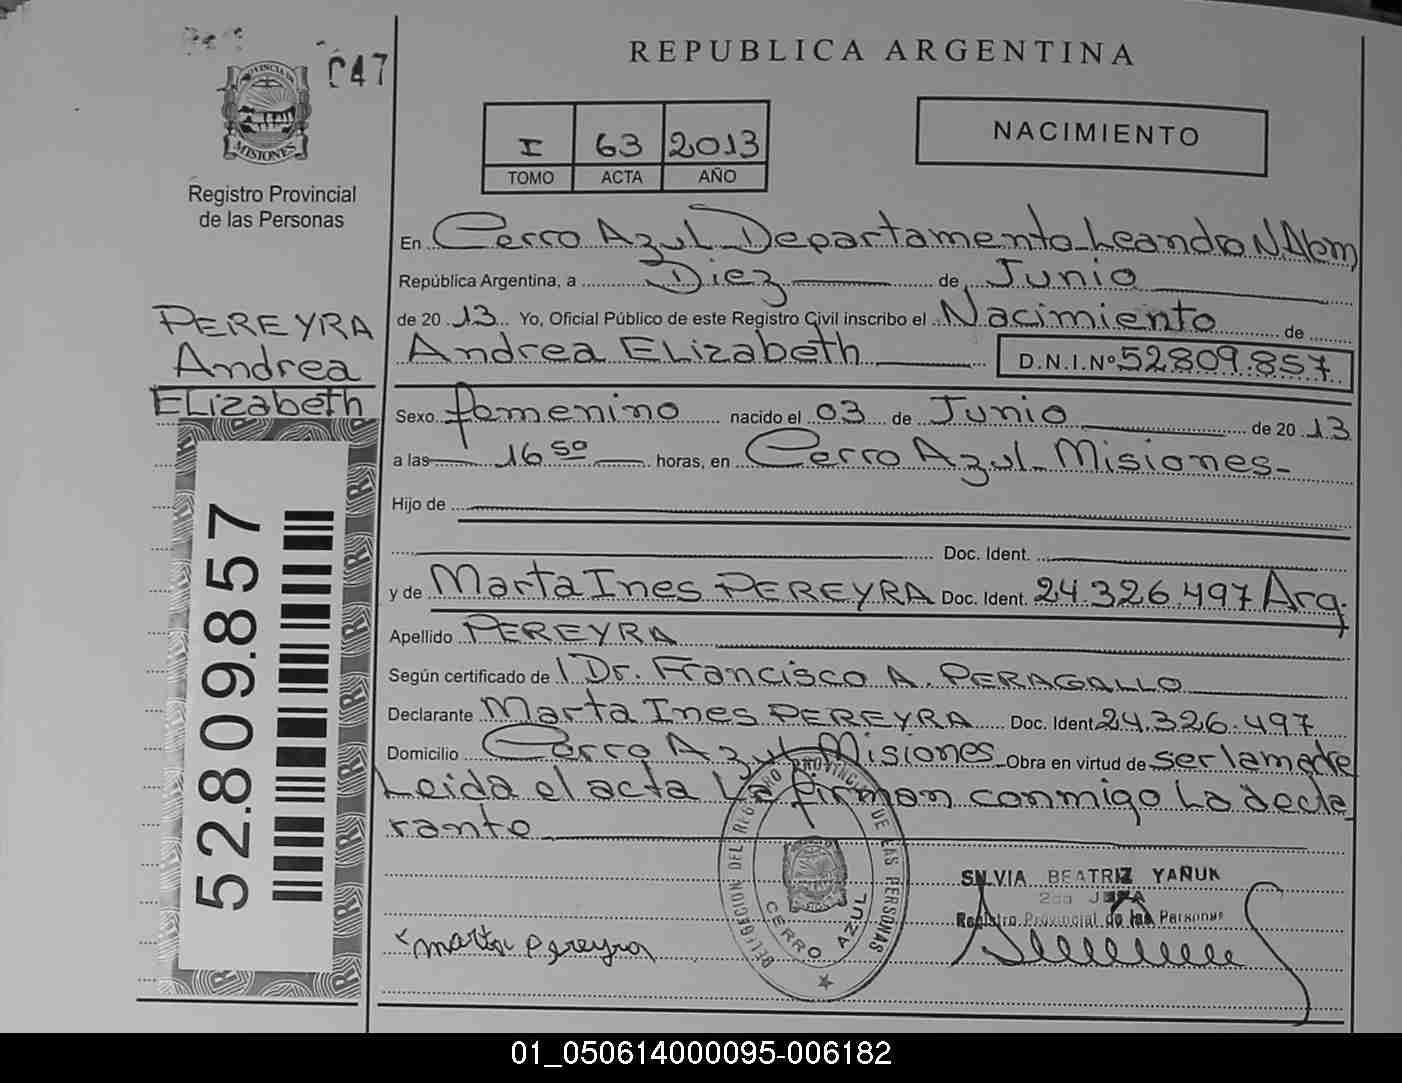 047
PROVINCIA DE
MISIONES
Registro Provincial
de las Personas
PEREYRA
Andrea
ELizabeth
52.809.857
REPUBLICA ARGENTINA
I 63 2013
TOMO ACTA AÑO
NACIMIENTO
En Cerro Azul Departamento Leandro N. Alem
República Argentina, a Diez de Junio
de 2013 Yo, Oficial Público de este Registro Civil inscribo el Nacimiento de
Andrea ELizabeth D.N.I.Nº 52809.857
Sexo femenino nacido el 03 de Junio de 2013
a las 16 50 horas, en Cerro Azul Misiones
Hijo de
Doc. Ident.
y de Marta Ines PEREYRA Doc. Ident. 24.326.497 Arg.
Apellido PEREYRA
Según certificado de l Dr. Francisco A. PERAGALLO
Declarante Marta Ines PEREYRA Doc. Ident. 24.326.497
Domicilio Cerro Azul Misiones Obra en virtud de ser la madre
Leida el acta La firman conmigo La decla
rante
DELEGACION DEL REGISTRO PROVINCIAL DE LAS PERSONAS
CERRO AZUL
SILVIA BEATRIZ YAÑUK
2da JEFA
Registro Provincial de las Personas
x marta Pereyra
01_050614000095-006182